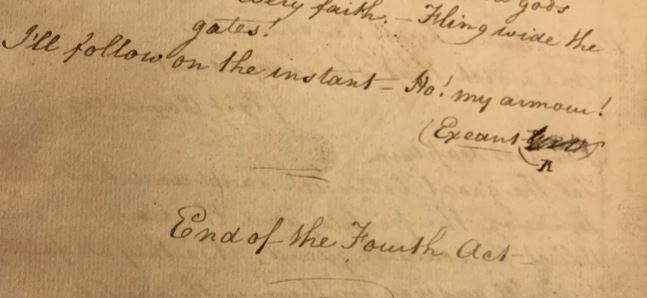 very faith. – Fling wide the
gods
gates!
I'll follow on the instant – Ho! my armour!
(Exeunt
R
End of the Fourth Act –